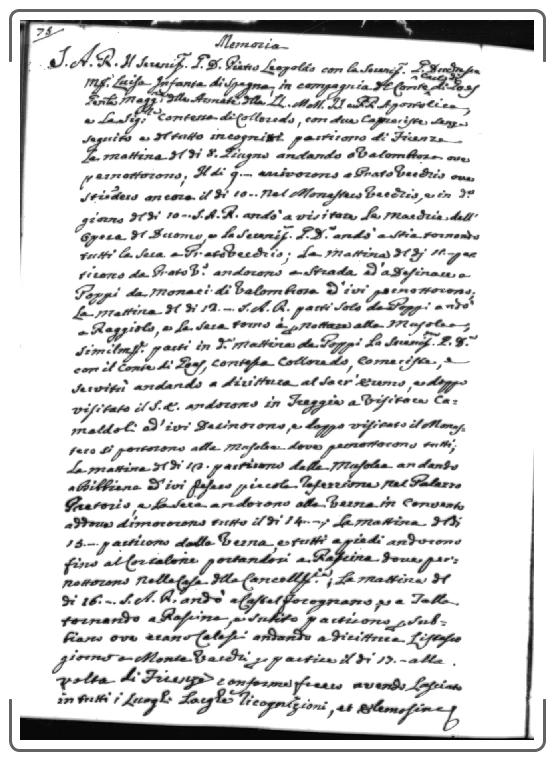 78
Memoria
S. A. R. Il Sereniss. P. D. Pietro Leopoldo con la Sereniss. P. Duchessa
M.ss. Luisa Infanta di Spagna, in compagnia del Conte di
delle Armate delle LL. MM. II. e RR. Apostolica,
e La Sig. Contessa di Colloredo, con due Cameriste senza
seguito e del tutto incogniti partirono di Firenze
La mattina del di 8. Giugno andando a Valombrosa ove
pernottorono, Il di 9.... arrivorono a Prato Vecchio ove
stiedero ancora il di 10... nel Monastero Vecchio, e in d.o
giorno del di 10... S. A. R. andò a visitare La Madria dell'
Opera del Duomo, e La Sereniss. P. D.a andò a Stia tornando
tutti la sera a Prato Vecchio; La mattina del di 11. par
tirono da Prato V.o andorono a Strada ad a Desinare a
Poppi da Monaci di Valombrosa ed ivi pernottorono,
La mattina del di 12... S. A. R. partì solo da Poppi andò
a Raggiolo, e La sera tornò a pernottare alla Musolea,
similm. partì in d.a mattina da Poppi La Sereniss. P. D.a
con il Conte di Contessa Colloredo, Cameriste, e
servitù andando a dirittura al Sacr'Eremo, e doppo
visitato il S. E. andorono in Treggia a visitare Ca-
maldoli ed ivi Desinorono, e doppo visitato il Monas-
tero si portorono alla Musolea dove pernottorono tutti;
La mattina del di 13. partirono dalla Musolea andando
a Bibbiena ed ivi fecero piccola refezione nel Palazzo
Pretorio, e La sera andorono alla Verna in Convento
addove dimororono tutto il di 14...; La mattina del di
15... partirono dalla Verna e tutti a piedi andorono
fino al Corsalone portandosi a Rassina dove per-
nottorono nella Casa della Cancelleria; La mattina del
di 16... S. A. R. andò a Castel Focognano, e a Talla
tornando a Rassina, e subito partirono p. Sub-
biano ove erano Calessi andando a dirittura L'istesso
giorno a Monte Varchi, e partire il di 17.. alla
volta di Firenze conforme fecero avendo Lasciato
in tutti i Luoghi Larghe ricognizioni, et Elemosine